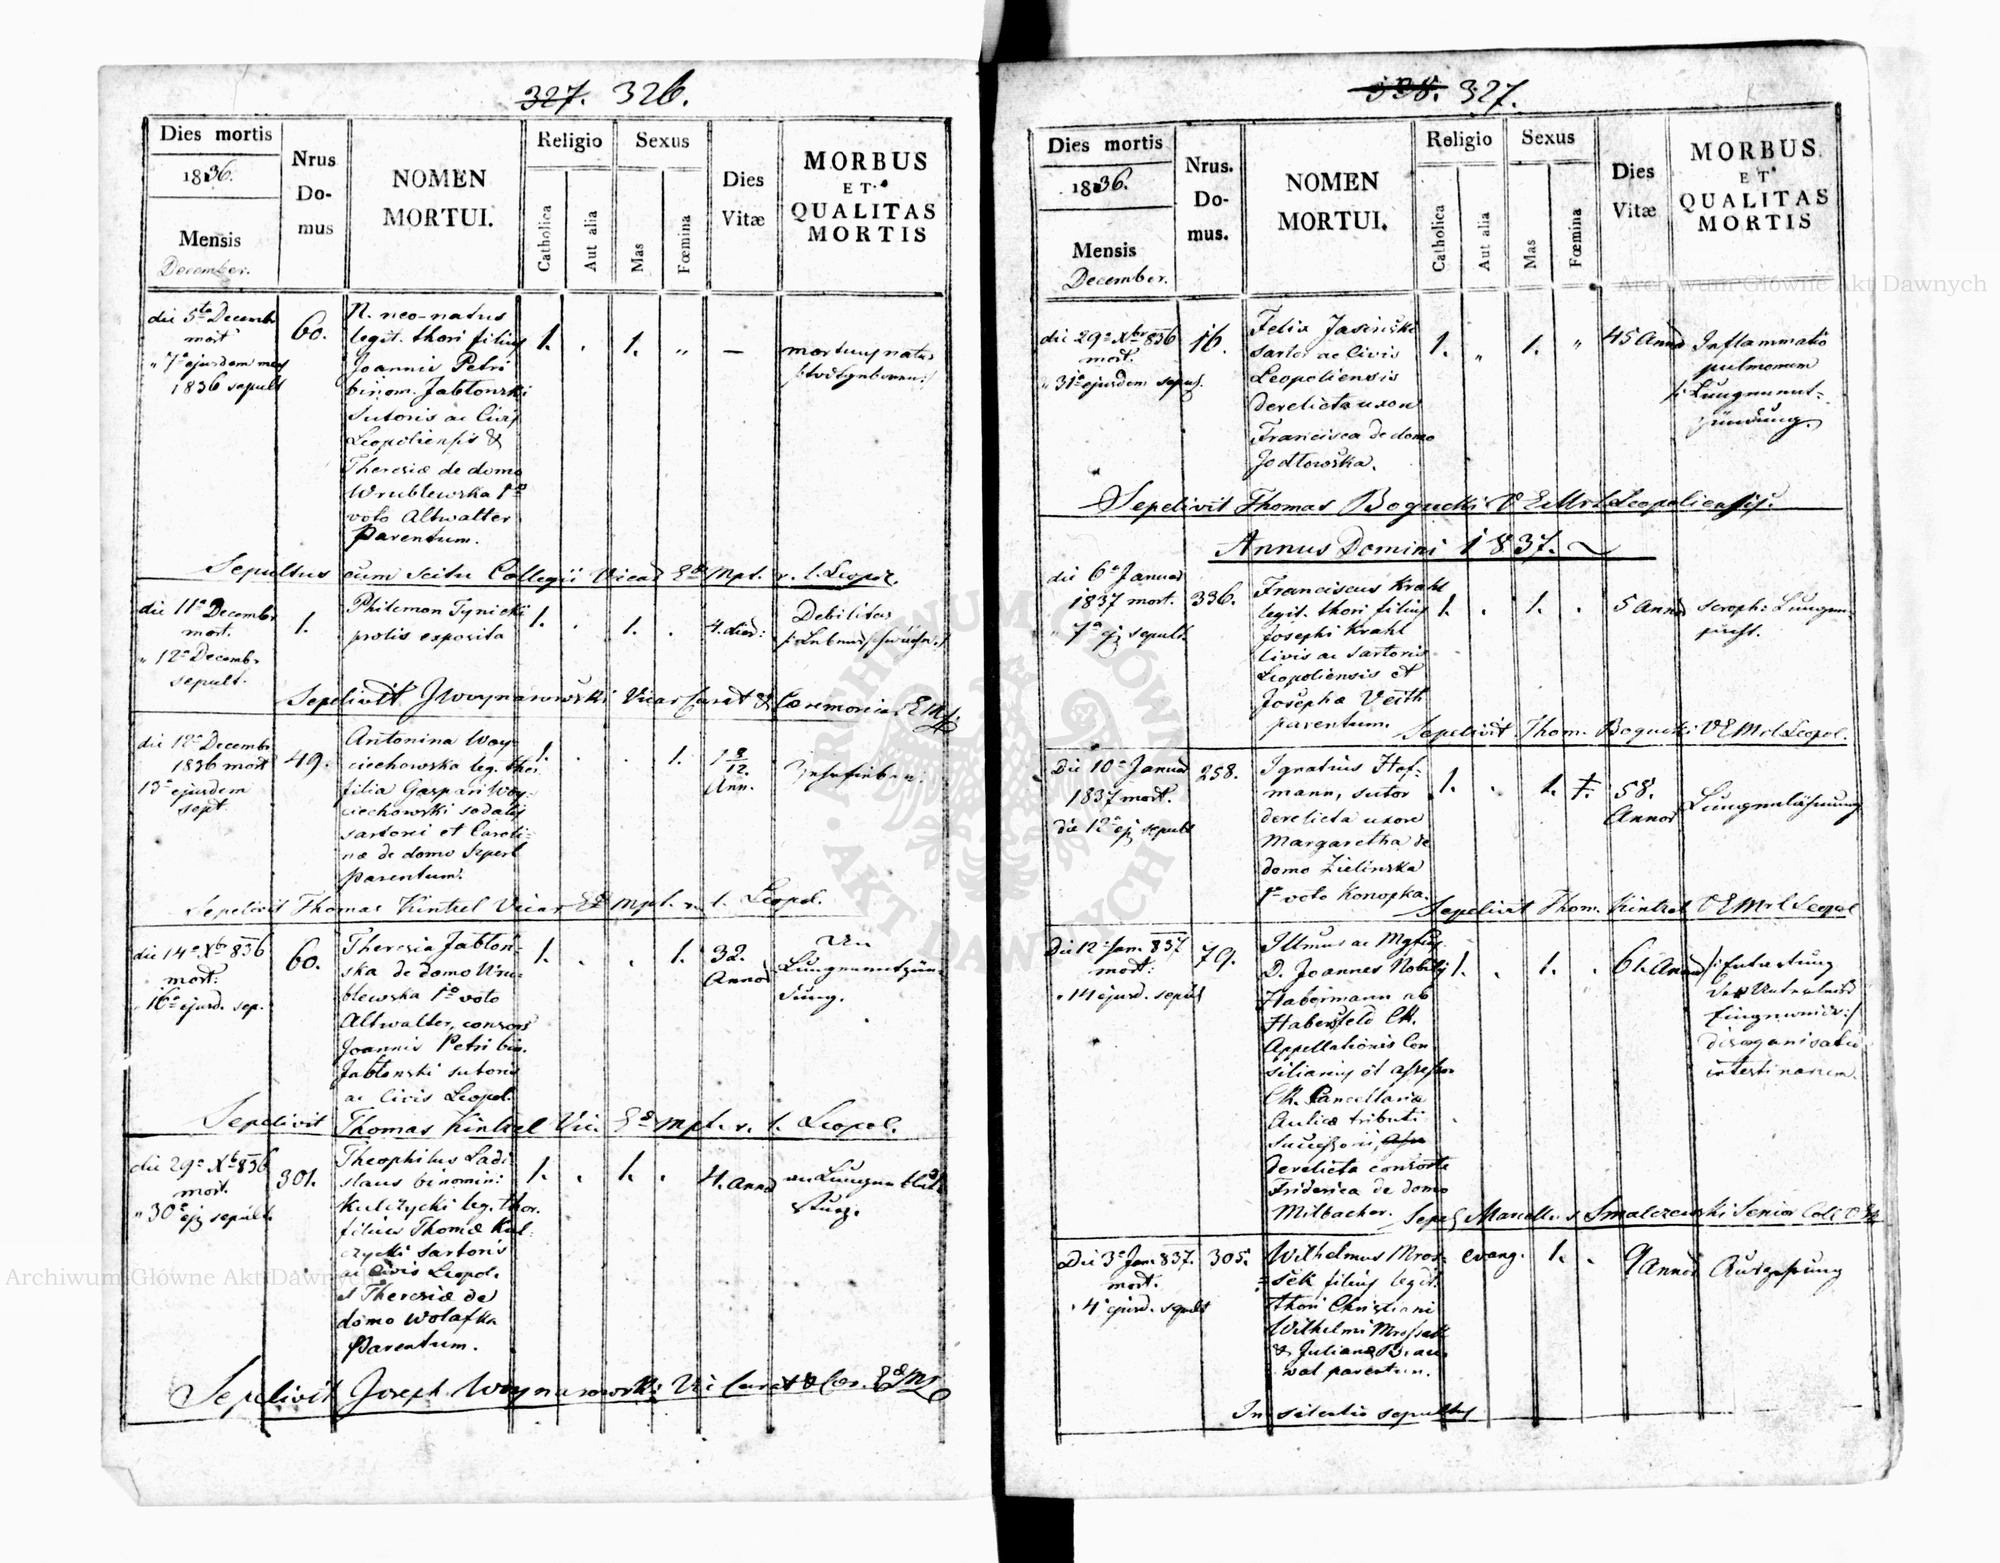 327. 326.
Dies mortis
1836.
Mensis
December.
Nrus
Do-
mus
NOMEN
MORTUI.
Religio
Catholica
Aut alia
Sexus
Mas
Fœmina
Dies
Vitæ
MORBUS
ET
QUALITAS
MORTIS
die 5ta Decembr
mort
" 7a ejusdem mens
1836 sepult
60.
N. neo-natus
legit. thori filius
Joannis Petri
binom. Jabłonski
Sutoris ac Civis
Leopoliensis &
Theresiæ de domo
Wrublewska 1o
voto Altwalter
Parentum.
1. . 1. " —
mortuus natus
Sepultus cum scitu Collegii Vicar Ed Mpl. r. l. Leopol.
die 11a Decembr
mort.
" 12a Decembr
sepult.
1.
Philemon Tynicki
prolis exposita
1. . 1. .
4. dier:
Debilitas
Sepelivit J Woynarowski Vicar Curat & Cæremoniar E M
die 12a Decembr
1836 mort
13a ejusdem
sept.
49.
Antonina Woy-
ciechowska leg. thor.
filia Gaspari Woy-
ciechowski sodalis
sartori et Caroli-
næ de domo Szperl
Parentum.
1. . . 1.
1 8/12.
Ann.
Zehrfieber.
Sepelivit Thomas Kintzel Vicar Ed Mpl. r. l. Leopol.
die 14a Xbr 836
mort.
" 16a ejusd. sep.
60.
Theresia Jabłon-
ska de domo Wru-
blewska 1o voto
Altwalter, consors
Joannis Petri bin.
Jabłonski sutoris
ac Civis Leopol.
1. . . 1.
32.
Annor
Lungenentzün-
dung.
Sepelivit Thomas Kintzel Vic. Ed Mpl. r. l. Leopol.
die 29a Xbr 836
mort.
" 30a ej sepult.
301.
Theophilus Ladi-
slaus binomin:
Kulczycki leg. thor.
filius Thomæ Kul-
czycki Sartoris
ac Civis Leopol.
et Theresiæ de
domo Wolafka
Parentum.
1. . 1. .
4. Anno
an Lungen blut
sturz.
Sepelivit Joseph Woynarowski Vic Curat & Cær. Ed M
328. 327.
Dies mortis
1836.
Mensis
December.
Nrus.
Do-
mus.
NOMEN
MORTUI.
Religio
Catholica
Aut alia
Sexus
Mas
Fœmina
Dies
Vitæ
MORBUS
ET
QUALITAS
MORTIS
die 29a Xbr 836
mort.
" 31a ejusdem sepul.
16.
Felix Jasinski
sartor ac Civis
Leopoliensis
derelicta uxore
Francisca de domo
Jodłowska.
1. " 1. "
45 Anno
Inflammatio
pulmonum
/: Lungenent-
zündung.
Sepelivit Thomas Bogucki V E Mrl Leopoliensis.
Annus Domini 1837.
die 6a Januar
1837 mort.
" 7a ej sepult.
336.
Franciscus Krahl
legit. thori filius
Josephi Krahl
Civis ac Sartoris
Leopoliensis et
Josepha Veith
parentum.
1. . 1. .
5 Anno
scroph: Lungen-
sucht.
Sepelivit Thom. Bogucki V E Mrl Leopol.
Die 10a Januar
1837 mort.
die 12a ej sepult
258.
Ignatius Hof-
mann, sutor
derelicta uxore
Margaretha de
domo Zielinska
1o voto Konopka.
1. . 1. .
58.
Annor
Lungenlähmung
Sepelivit Thom. Kintzel V E Mrl Leopol
Die 12a Jan. 837
mort:
" 14 ejusd. sepult
79.
Illmus ac Mgfcus
D. Joannes Nobilis
Habermann ab
Habersfeld CR.
Appellationis Con-
siliarius et assessor
CR. Cancellariæ
Aulicæ tributi
derelicta consorte
Friderica de domo
Milbacher.
1. . 1. .
61. Anno
/: Entartung
der Unterleibs
Eingeweide:/
disorganisatio
intestinorum.
Sepel Marcellus Smalczewski Senior Coll V E
Die 3a Jan 837.
mort.
" 4a ejusd. sepult
305.
Wilhelmus Mros-
sek filius legit.
thori Christiani
Wilhelmi Mrossek
& Julianæ Brau
wal parentum.
evang. 1. .
9 Annor
Auszehrung
In silentio sepultus
Archiwum Główne Akt Dawnych
Archiwum Główne Akt Dawnych
ARCHIWUM GŁÓWNE AKT DAWNYCH